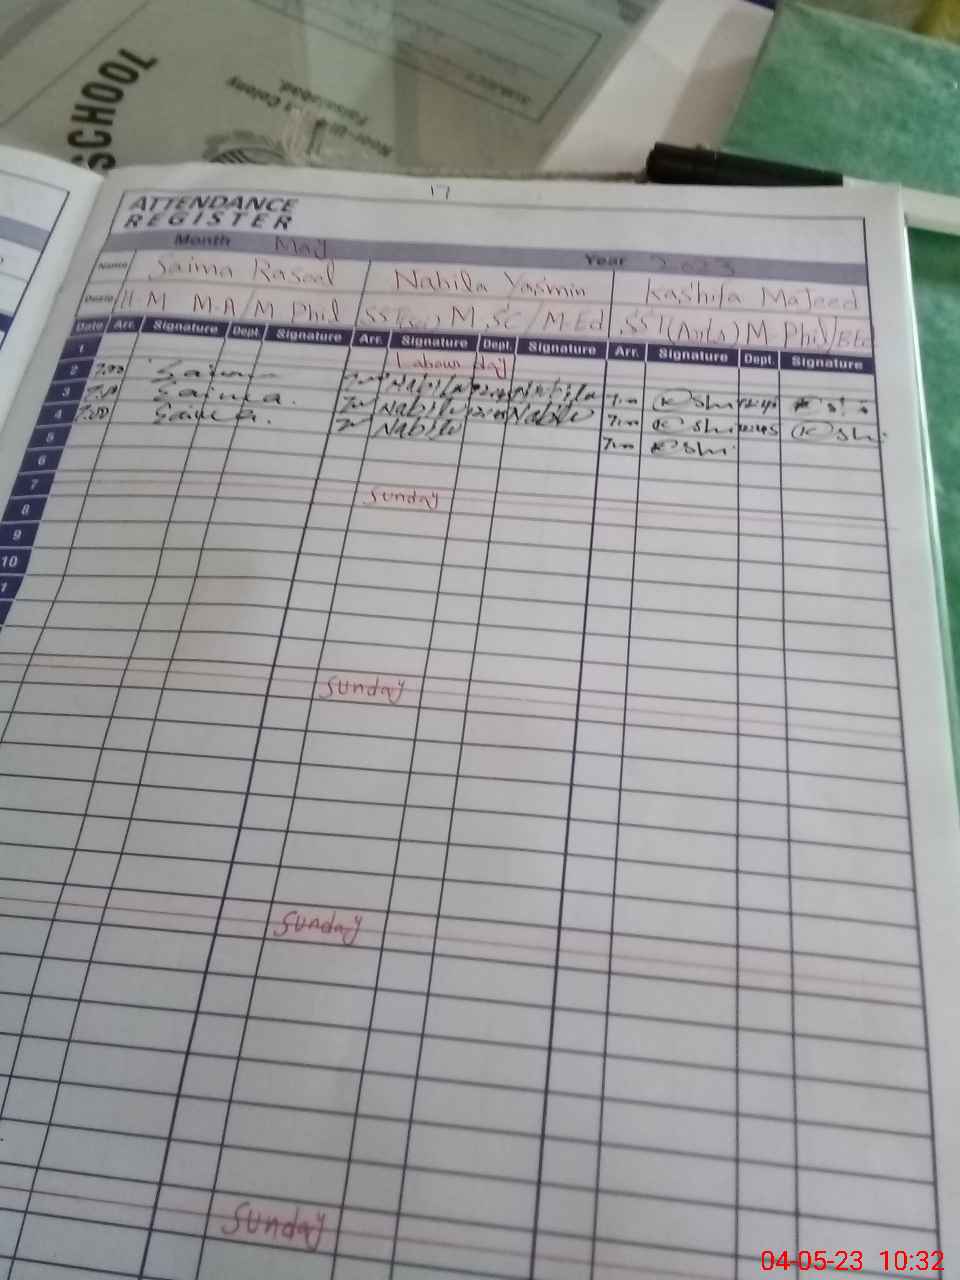 SCHOOL
Colony
17
ATTENDANCE
REGISTER
Month May Year 2023
Name Saima Rasool Nabila Yasmin Kashifa Majeed
H-M M-A/M Phil M.SC/M.Ed SST(Arts) M-Phil/BEd
Date Arr. Signature Dept. Signature Arr. Signature Dept. Signature Arr. Signature Dept. Signature
1 Labour day
2 7.00 Saima Nabila Nabila 7.00 12:45
3 7.00 Saima. Nabila 12:45 Nabila 7.00 12:45
4 7.00 Saima. Nabila 7.00
5
6
7 Sunday
8
9
10
Sunday
Sunday
Sunday
04-05-23 10:32